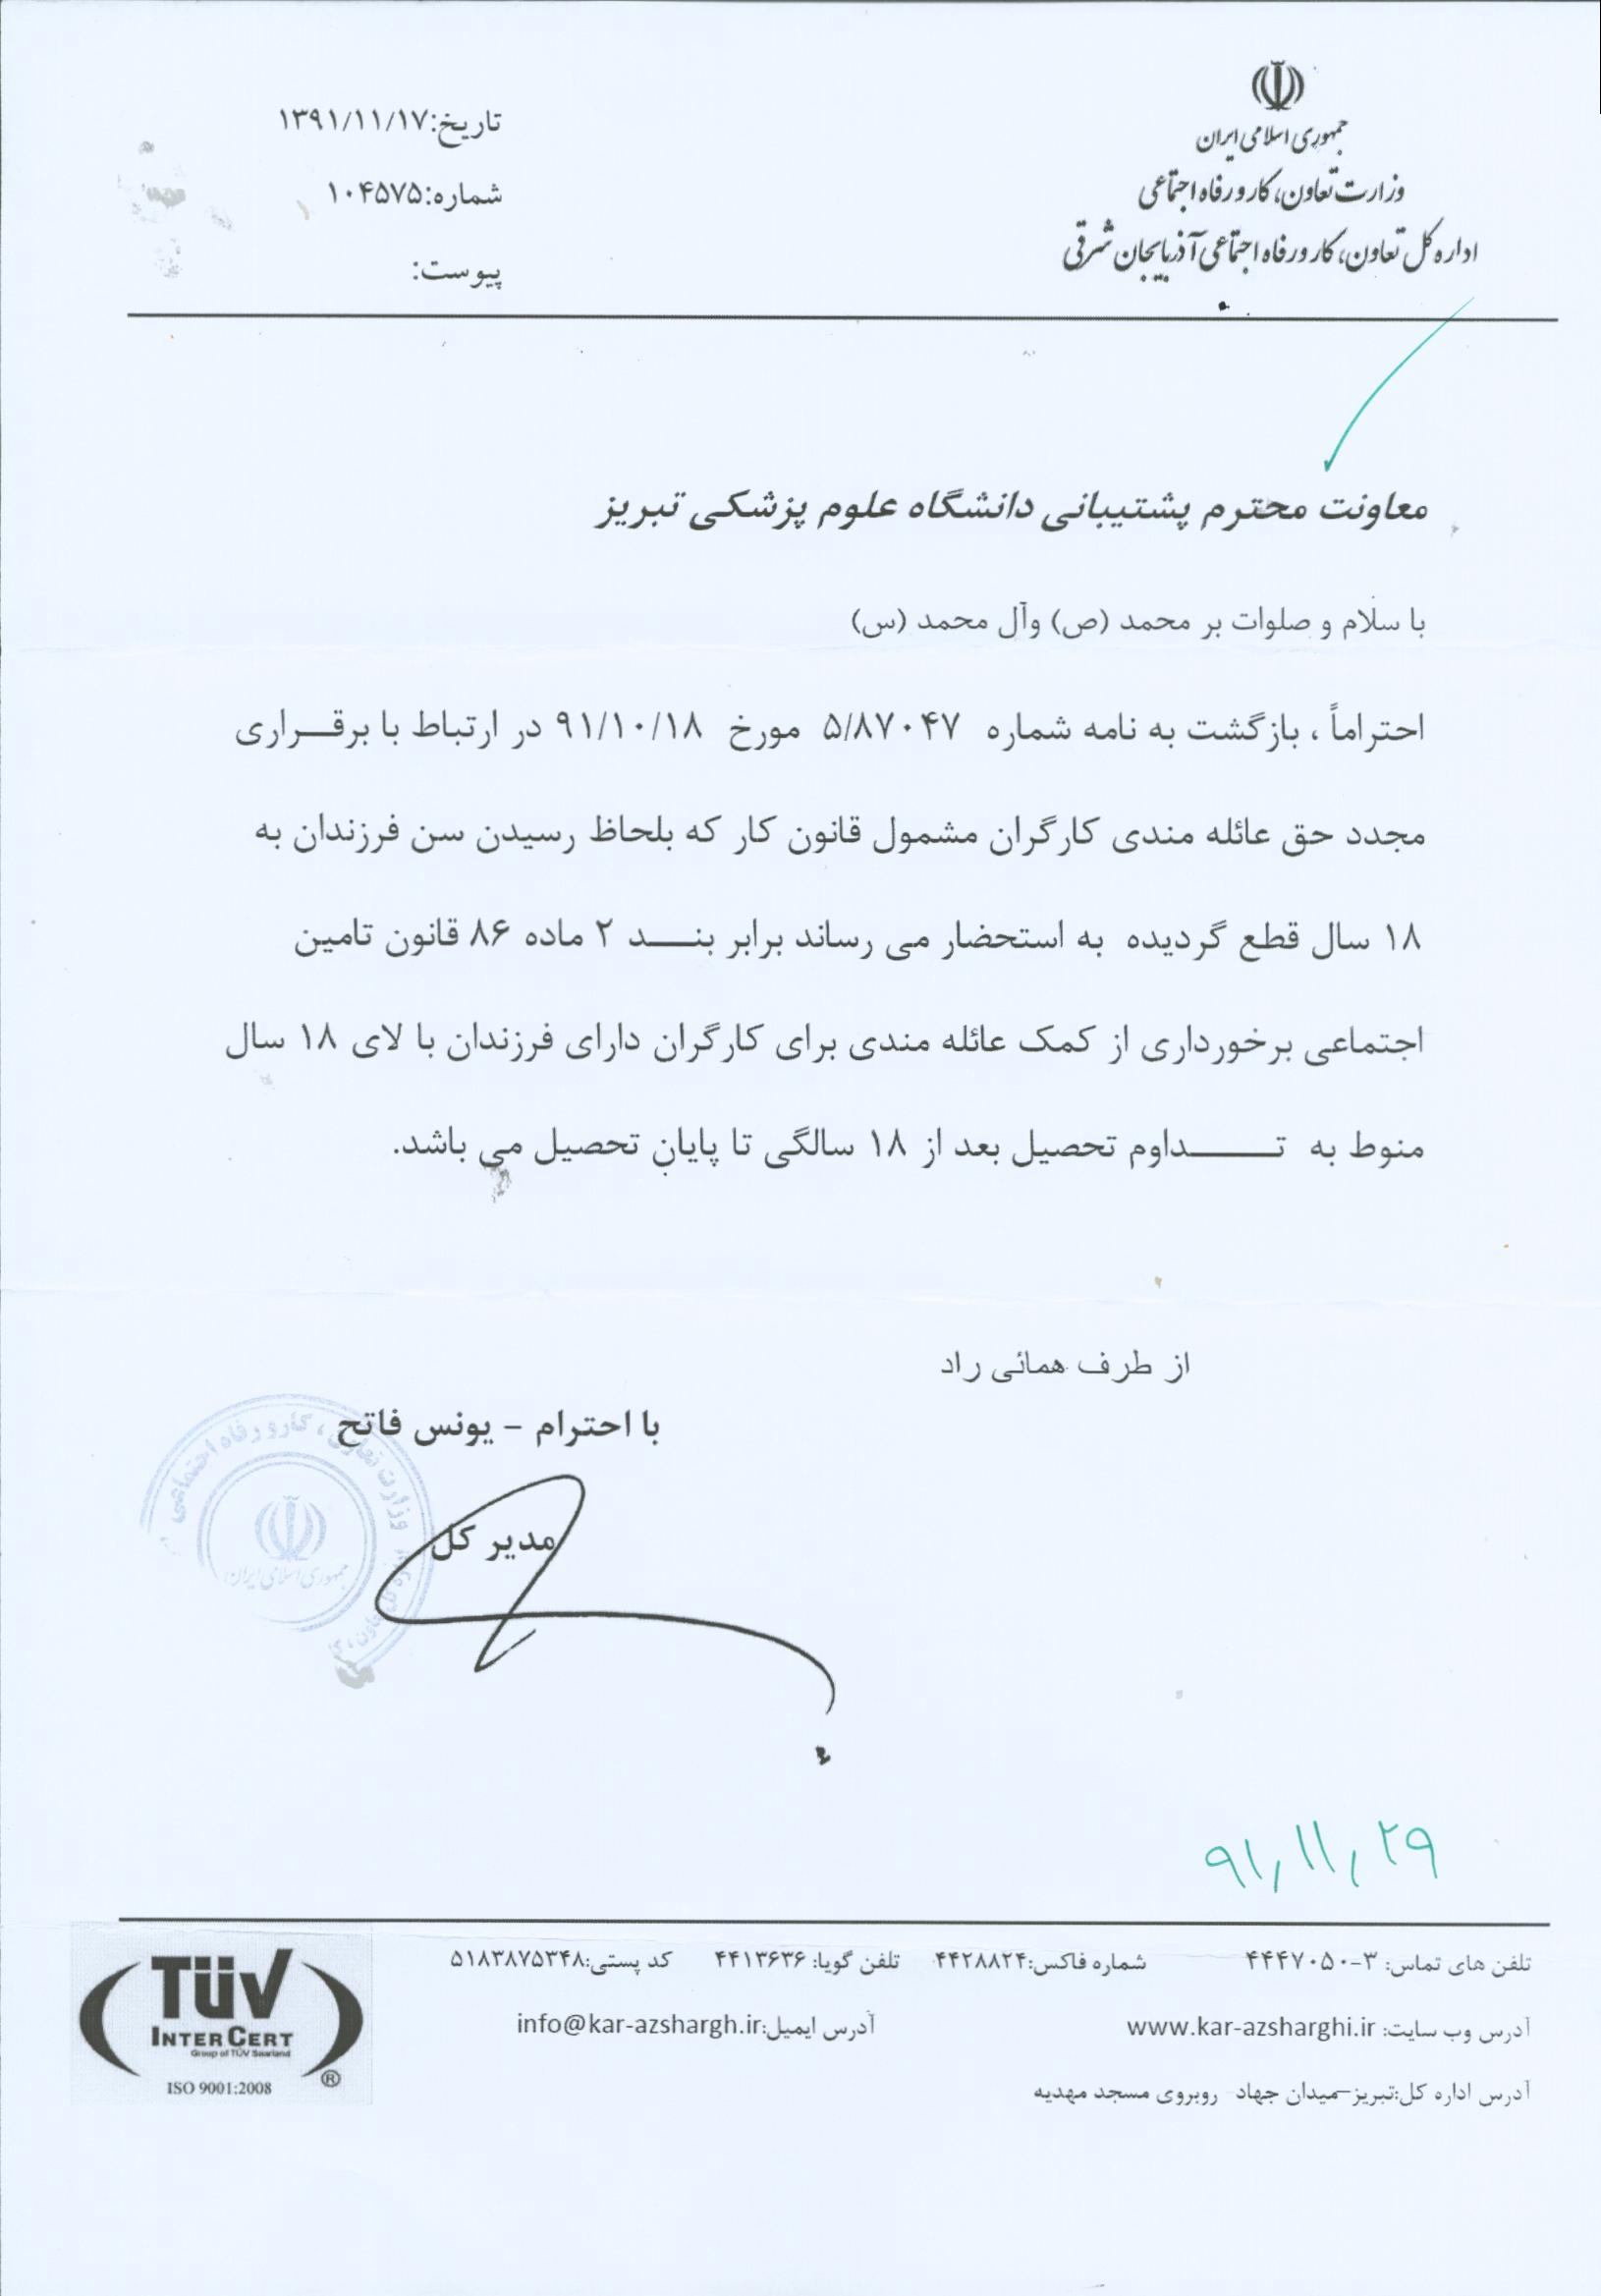 جمهوری اسلامی ایران
وزارت تعاون، کار و رفاه اجتماعی
اداره کل تعاون، کار و رفاه اجتماعی آذربایجان شرقی
تاریخ:۱۳۹۱/۱۱/۱۷
شماره:۱۰۴۵۷۵
پیوست:
معاونت محترم پشتیبانی دانشگاه علوم پزشکی تبریز
با سلام و صلوات بر محمد (ص) وآل محمد (س)
احتراماً ، بازگشت به نامه شماره ۵/۸۷۰۴۷ مورخ ۹۱/۱۰/۱۸ در ارتباط با برقـــراری
مجدد حق عائله مندی کارگران مشمول قانون کار که بلحاظ رسیدن سن فرزندان به
۱۸ سال قطع گردیده به استحضار می رساند برابر بنــــد ۲ ماده ۸۶ قانون تامین
اجتماعی برخورداری از کمک عائله مندی برای کارگران دارای فرزندان با لای ۱۸ سال
منوط به تـــــــداوم تحصیل بعد از ۱۸ سالگی تا پایان تحصیل می باشد.
از طرف همائی راد
با احترام – یونس فاتح
مدیر کل
وزارت تعاون ، کار و رفاه اجتماعی
جمهوری اسلامی ایران
۹۱,۱۱,۲۹
تلفن های تماس: ۳-۴۴۴۷۰۵۰ شماره فاکس:۴۴۲۸۸۲۴ تلفن گویا: ۴۴۱۳۶۳۶ کد پستی:۵۱۸۳۸۷۵۳۴۸
آدرس وب سایت: www.kar-azsharghi.ir آدرس ایمیل:info@kar-azshargh.ir
آدرس اداره کل:تبریز–میدان جهاد روبروی مسجد مهدیه
TÜV
INTER CERT
Group of TÜV Saarland
®
ISO 9001:2008